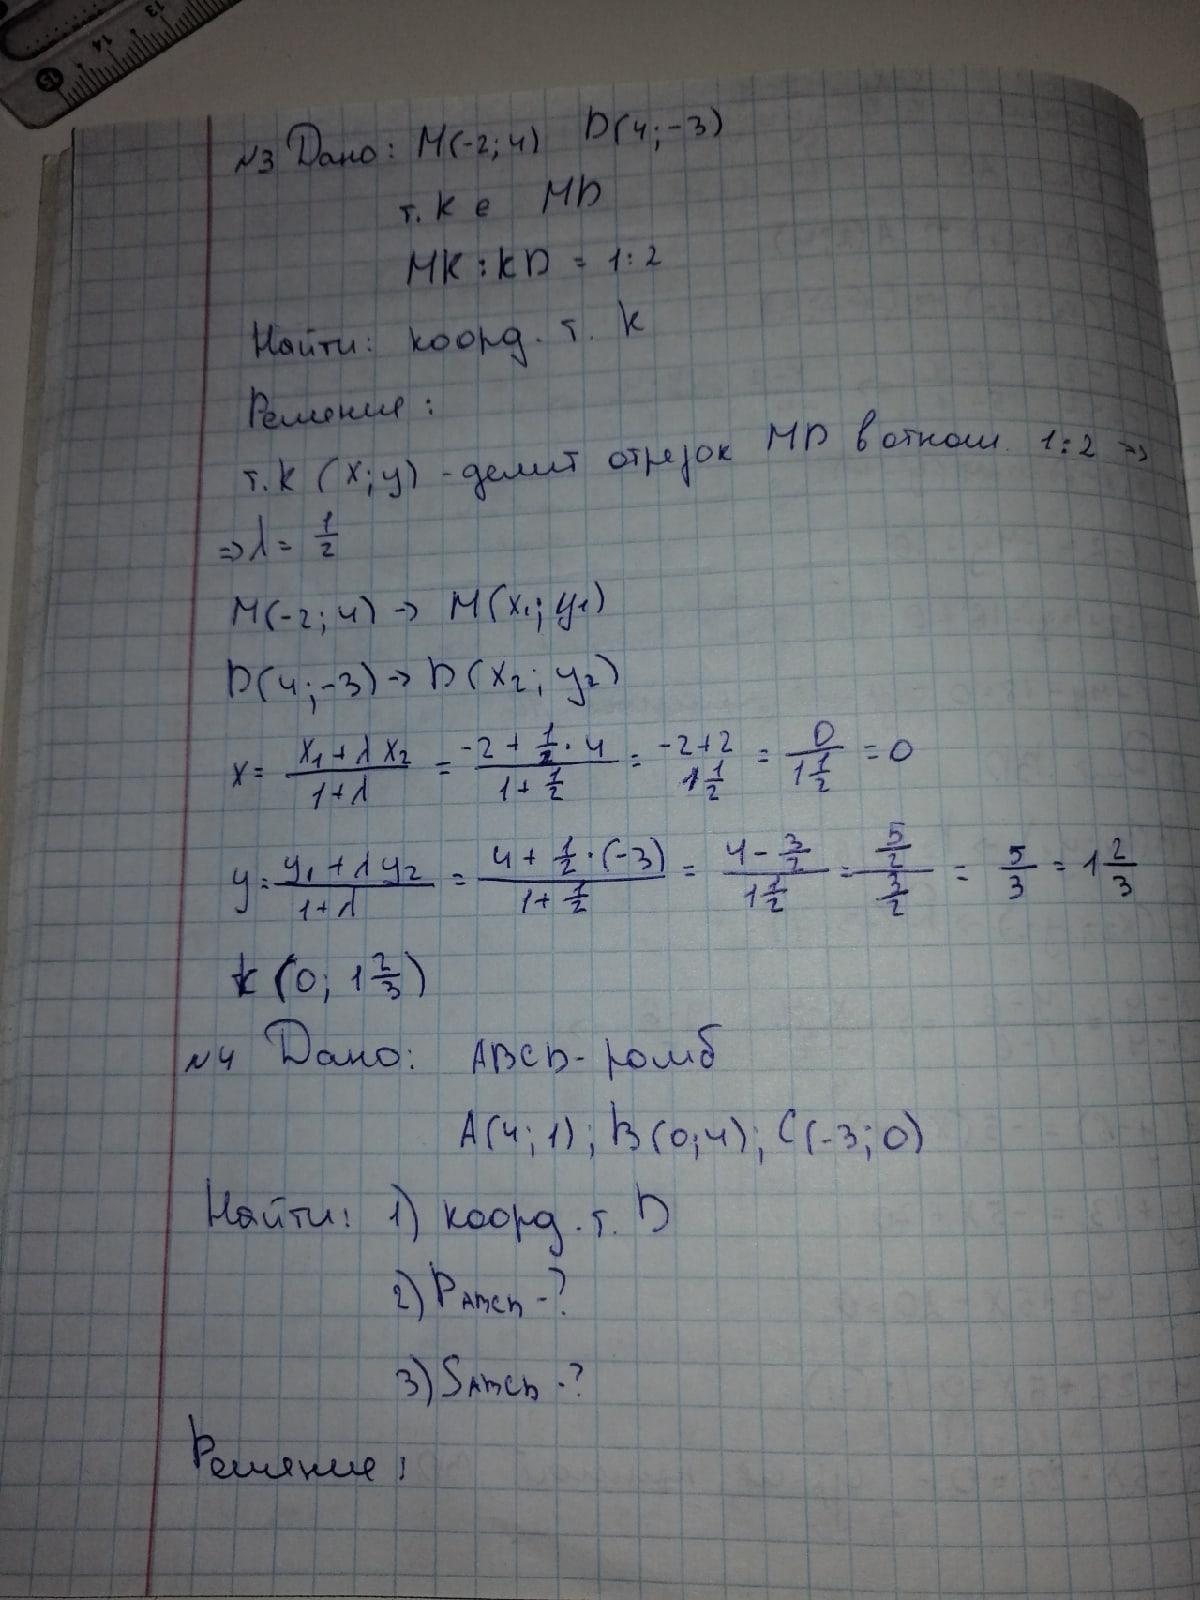 13
14
15
№3 Дано: M(-2; 4) D(4; -3)
т. K ∈ MD
MK : KD = 1 : 2
Найти: коорд. т. K
Решение:
т. K (x; y) - делит отрезок MD в отнош. 1:2 =>
=> λ = 1/2
M(-2; 4) -> M(x₁; y₁)
D(4; -3) -> D(x₂; y₂)
x = (x₁ + λx₂)/(1+λ) = (-2 + 1/2 · 4)/(1 + 1/2) = (-2+2)/(1 1/2) = 0/(1 1/2) = 0
y = (y₁ + λy₂)/(1+λ) = (4 + 1/2 · (-3))/(1 + 1/2) = (4 - 3/2)/(1 1/2) = (5/2)/(3/2) = 5/3 = 1 2/3
K (0; 1 2/3)
№4 Дано: ABCD - ромб
A(4; 1); B(0; 4); C(-3; 0)
Найти: 1) коорд. т. D
2) PABCD - ?
3) SABCD - ?
Решение: